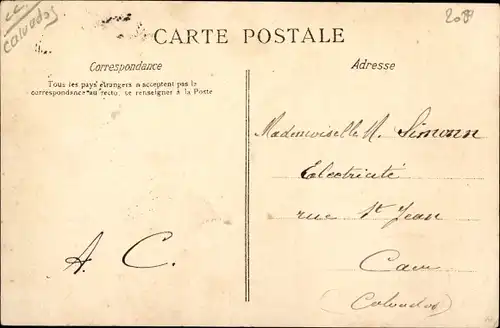 cc
Calvados
208
CARTE POSTALE
Correspondance
Adresse
Tous les pays étrangers n'acceptent pas la
correspondance au recto, se renseigner à la Poste
Mademoiselle N. Simonn
Electricité
rue St Jean
Caen
(Calvados)
A. C.